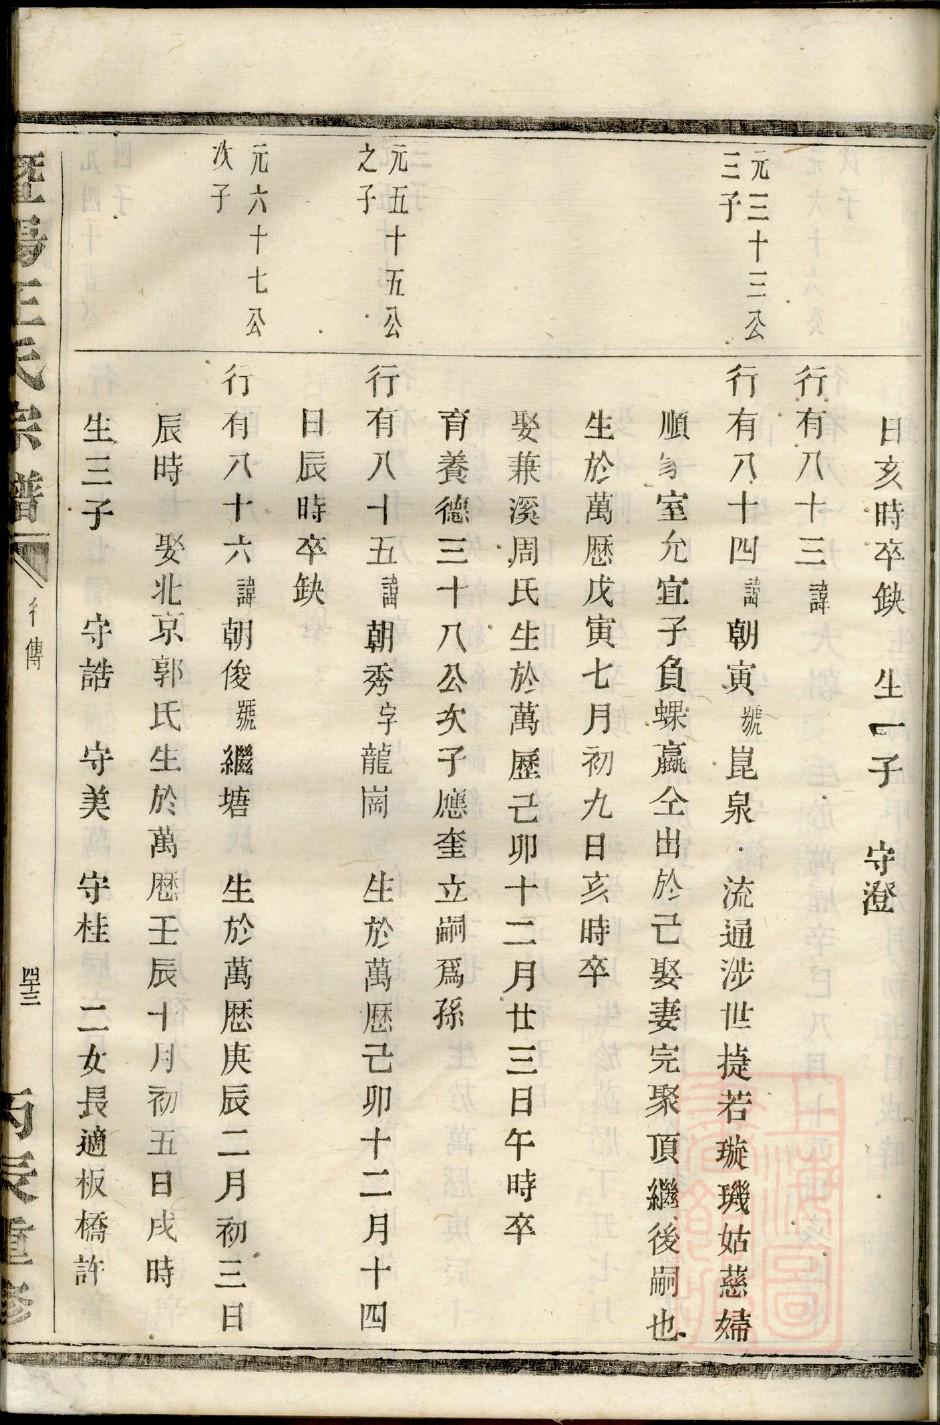 日亥時卒缺　生一子　守澄
行有八十三諱
元三十三公
三子
行有八十四諱朝寅號崑泉　流通涉世捷若璇璣姑慈婦
順家室允宜子負蜾蠃仝出於己娶妻完聚頂繼後嗣也
生於萬曆戊寅七月初九日亥時卒
娶蒹溪周氏生於萬歷己卯十二月廿三日午時卒
育養德三十八公次子應奎立嗣爲孫
元五十五公
之子
行有八十五諱朝秀字龍崗　生於萬歷己卯十二月十四
日辰時卒缺
元六十七公
次子
行有八十六諱朝俊號繼塘　生於萬歷庚辰二月初三日
辰時　娶北京郭氏生於萬歷壬辰十月初五日戌時
生三子　守誥　守美　守桂　二女長適板橋許
暨陽王氏宗譜
行傳
四十三
丙辰重修